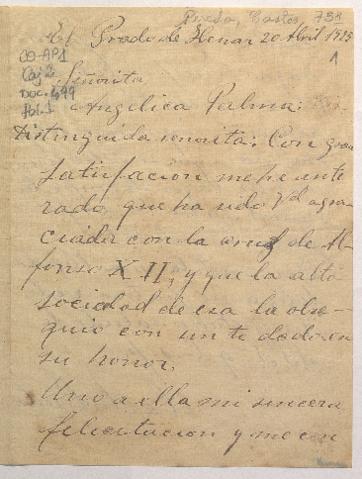 Prada, Carlos, 758
El Prado de Henar 20 Abril 1925
CO-AP1
Caj 2
Doc. 499
Fol. 1
1
Señorita
Angélica Palma:
Distinguida señorita: Con gran
satisfacion me he ente
rado, que ha sido Vd agra
ciada con la cruz de Al
fonso XII, y que la alta
sociedad de esa la obse-
quio con un te dado en
su honor.
Uno a ella mi sincera
felicitacion y me con